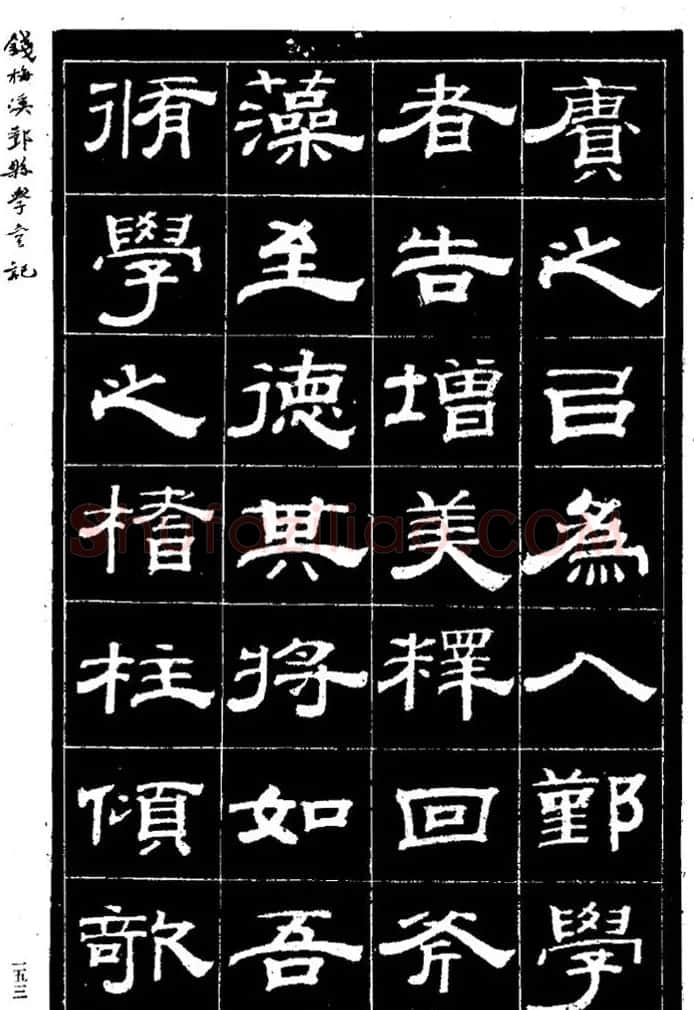 賡之㠯為入鄞學
者告增美釋回斧
藻至德其將如吾
脩學之榰柱傾欹
錢梅溪鄞縣學記
一五三
Shufaziliao.COM